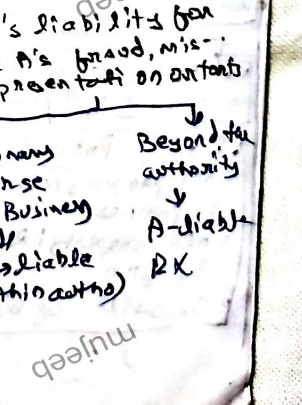 's liability for
A's fraud, mis-
presentation or torts
nary
rse
Business
liable
thin autho)
Beyond the
authority
A-liable
PX
mujeeb